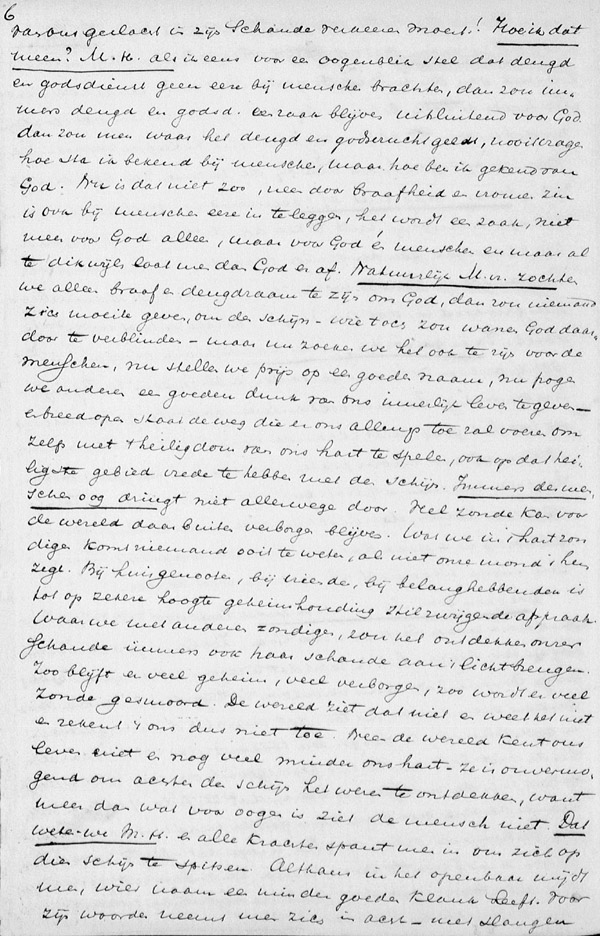 6
van ons geslacht in zijn schande verkeeren moest! Hoe ik dat
meen? M.H. als ik eens voor een oogenblik stel dat deugd
en godsdienst geen eere bij menschen brachten, dan zou im-
mers deugd en godsd. een zaak blijven uitsluitend voor God.
dan zou men waar het deugd en godsvrucht geldt, nooit vragen
hoe sta ik bekend bij menschen, maar hoe ben ik gekend van
God. Nu is dat niet zoo, neen door braafheid en vromen zin
is ook bij menschen eere in te leggen, het wordt een zaak, niet
meer voor God alleen, maar voor God én menschen en maar al
te dikwijls laat men dan God er af. Natuurlijk M.H. zochten
we alleen braaf en deugdzaam te zijn om God, dan zou niemand
zich moeite geven, om den schijn – wie toch zou wanen God daar-
door te verblinden – maar nu zoeken we het ook te zijn voor de
menschen, nu stellen we prijs op een goeden naam, nu pogen
we anderen een goeden dunk van ons innerlijk leven te geven –
en breed open staat de weg die er ons allengs toe zal voeren om
zelfs met 't heiligdom van ons hart te spelen, ook op dat hei-
ligste gebied vrede te hebben met den schijn. Immers des men-
schen oog dringt niet allerwege door. Veel zonde kan voor
de wereld daar buiten verborgen blijven. Wat we in 't hart zon
digen komt niemand ooit te weten, als niet onze mond 't hem
zegt. Bij huisgenooten, bij vrienden, bij belanghebbenden is
tot op zekere hoogte geheimhouding stilzwijgende afspraak.
Waar we met anderen zondigen, zou het ontdekken onzer
schande immers ook haar schande aan 't licht brengen.
Zoo blijft er veel geheim, veel verborgen, zoo wordt er veel
zonde gesmoord. De wereld ziet dat niet en weet het niet
en rekent 't ons dus niet toe. Neen de wereld kent ons
leven niet en nog veel minder ons hart – ze is onvermo-
gend om achter den schijn het wezen te ontdekken, want
meer dan wat voor oogen is ziet de mensch niet. Dat
weten we M.H. en alle krachten spant men in om zich op
dien schijn te spitsen. Althans in het openbaar mijdt
men, wiens naam een minder goeden klank heeft. Voor
zijn woorden neemt men zich in acht – met slangen